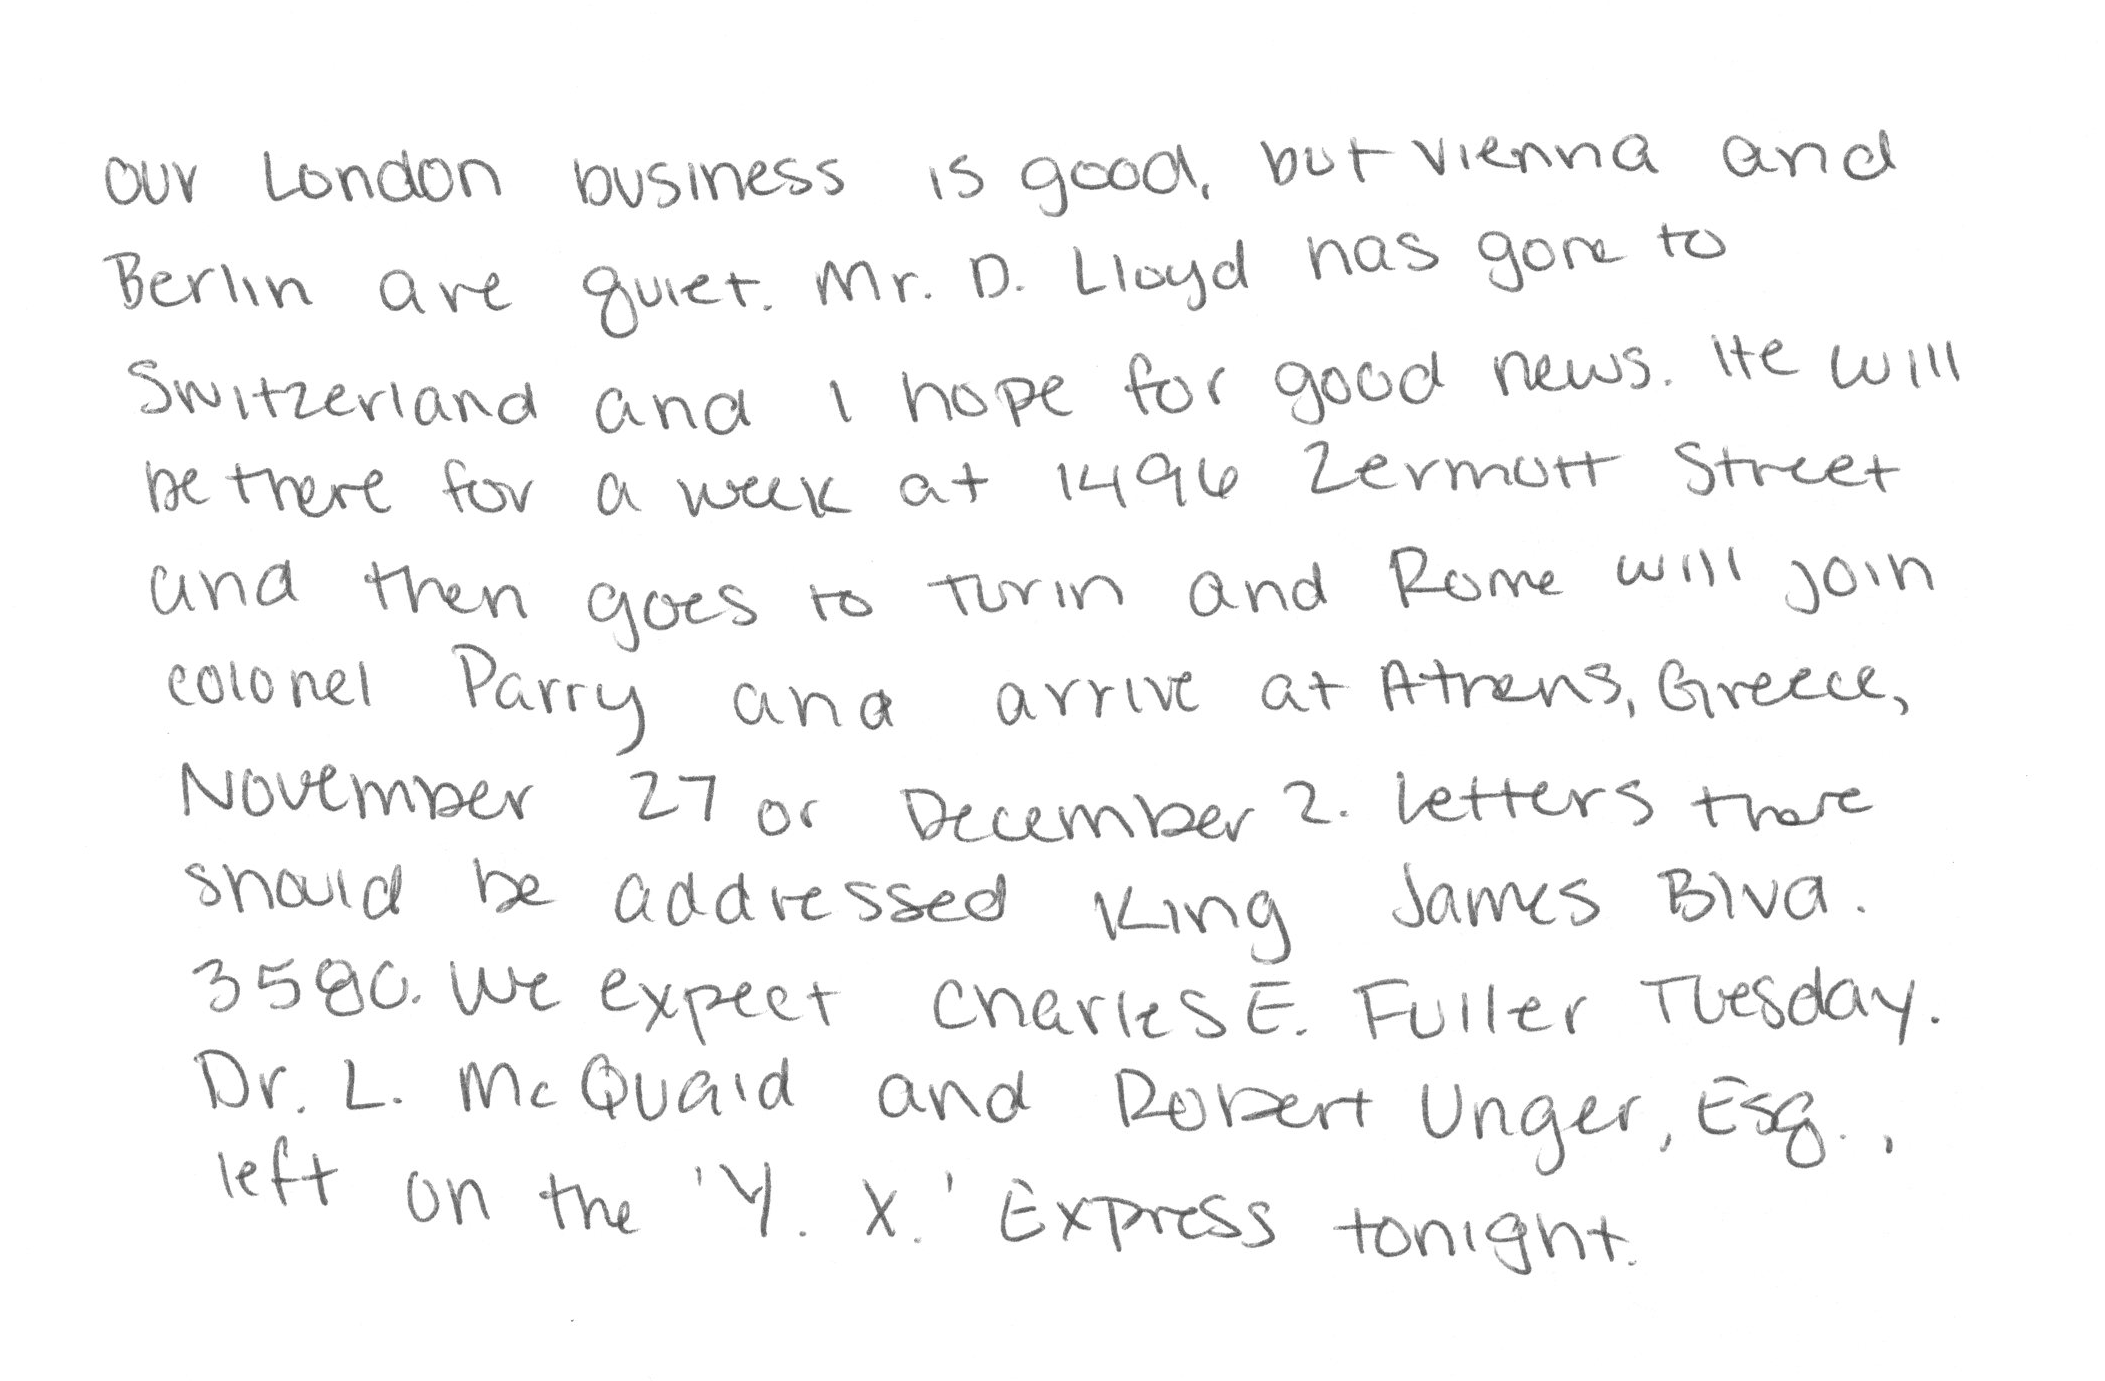 Our London business is good, but Vienna and
Berlin are quiet. Mr. D. Lloyd has gone to
Switzerland and I hope for good news. He will
be there for a week at 1496 Zermott Street
and then goes to Turin and Rome will join
colonel Parry and arrive at Athens, Greece,
November 27 or December 2. Letters there
should be addressed King James Blvd.
3580. We expect Charles E. Fuller Tuesday.
Dr. L. McQuaid and Robert Unger, Esq.,
left on the 'Y. X.' Express tonight.